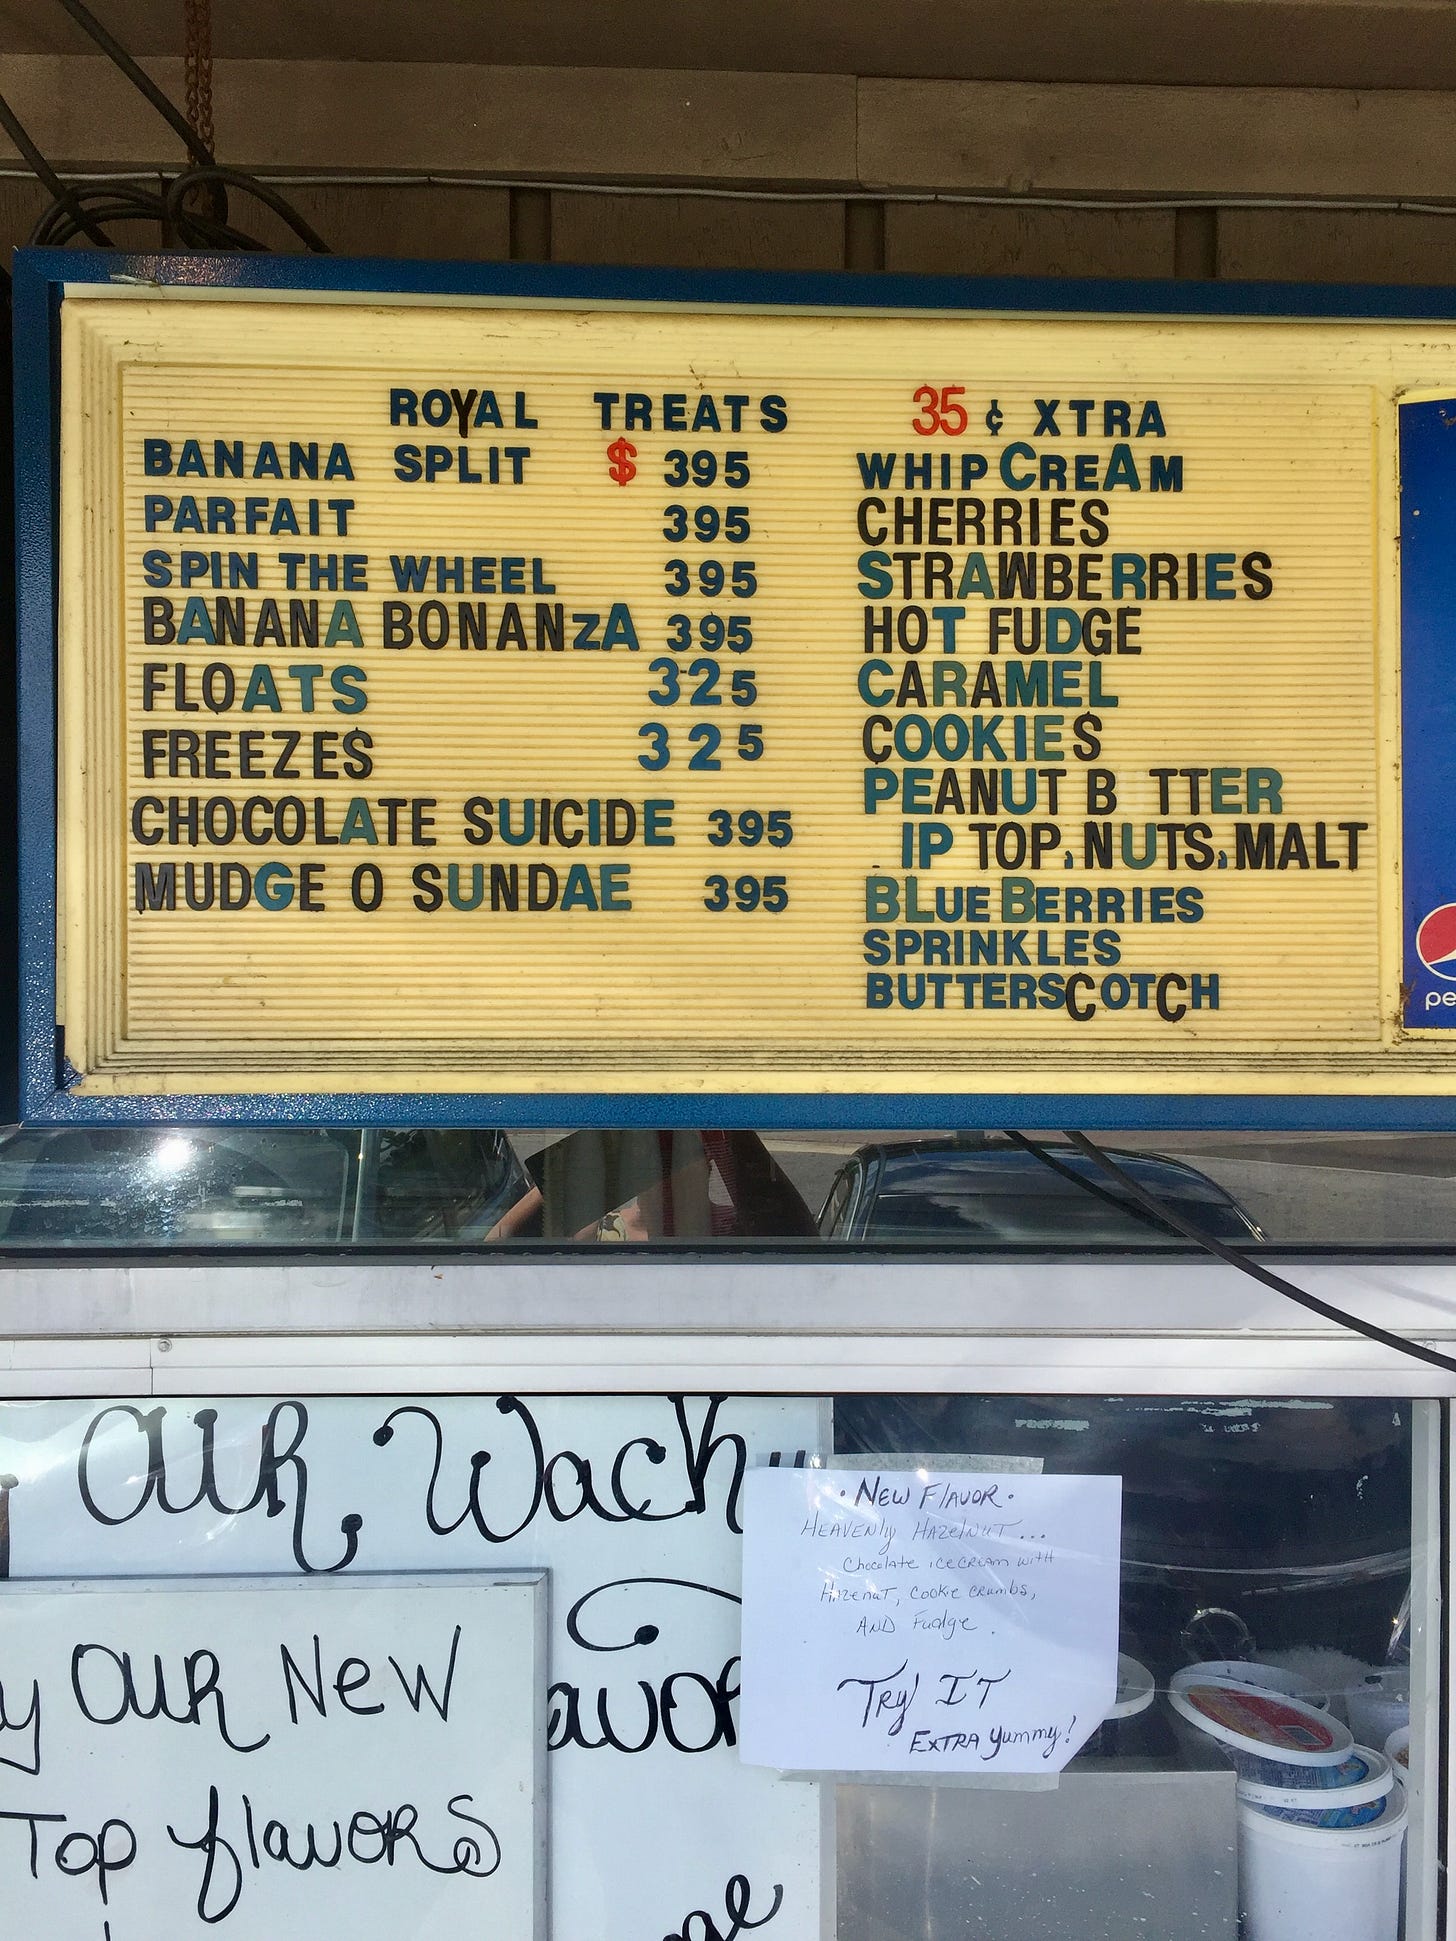 ROYAL TREATS
BANANA SPLIT $ 395
PARFAIT 395
SPIN THE WHEEL 395
BANANA BONANzA 395
FLOATS 325
FREEZES 325
CHOCOLATE SUICIDE 395
MUDGE O SUNDAE 395
35 ¢ XTRA
WHIP CREAM
CHERRIES
STRAWBERRIES
HOT FUDGE
CARAMEL
COOKIES
PEANUT B TTER
IP TOP, NUTS, MALT
BLUEBERRIES
SPRINKLES
BUTTERSCOTCH
pe
OUR "Wack
OUR New
Top flavors
• NEW FlAVOR •
HEAVENly HAZelNUT...
Chocolate ice cream with
Hazenut, Cookie crumbs,
AND Fudge.
Try IT
EXTRA yummy!